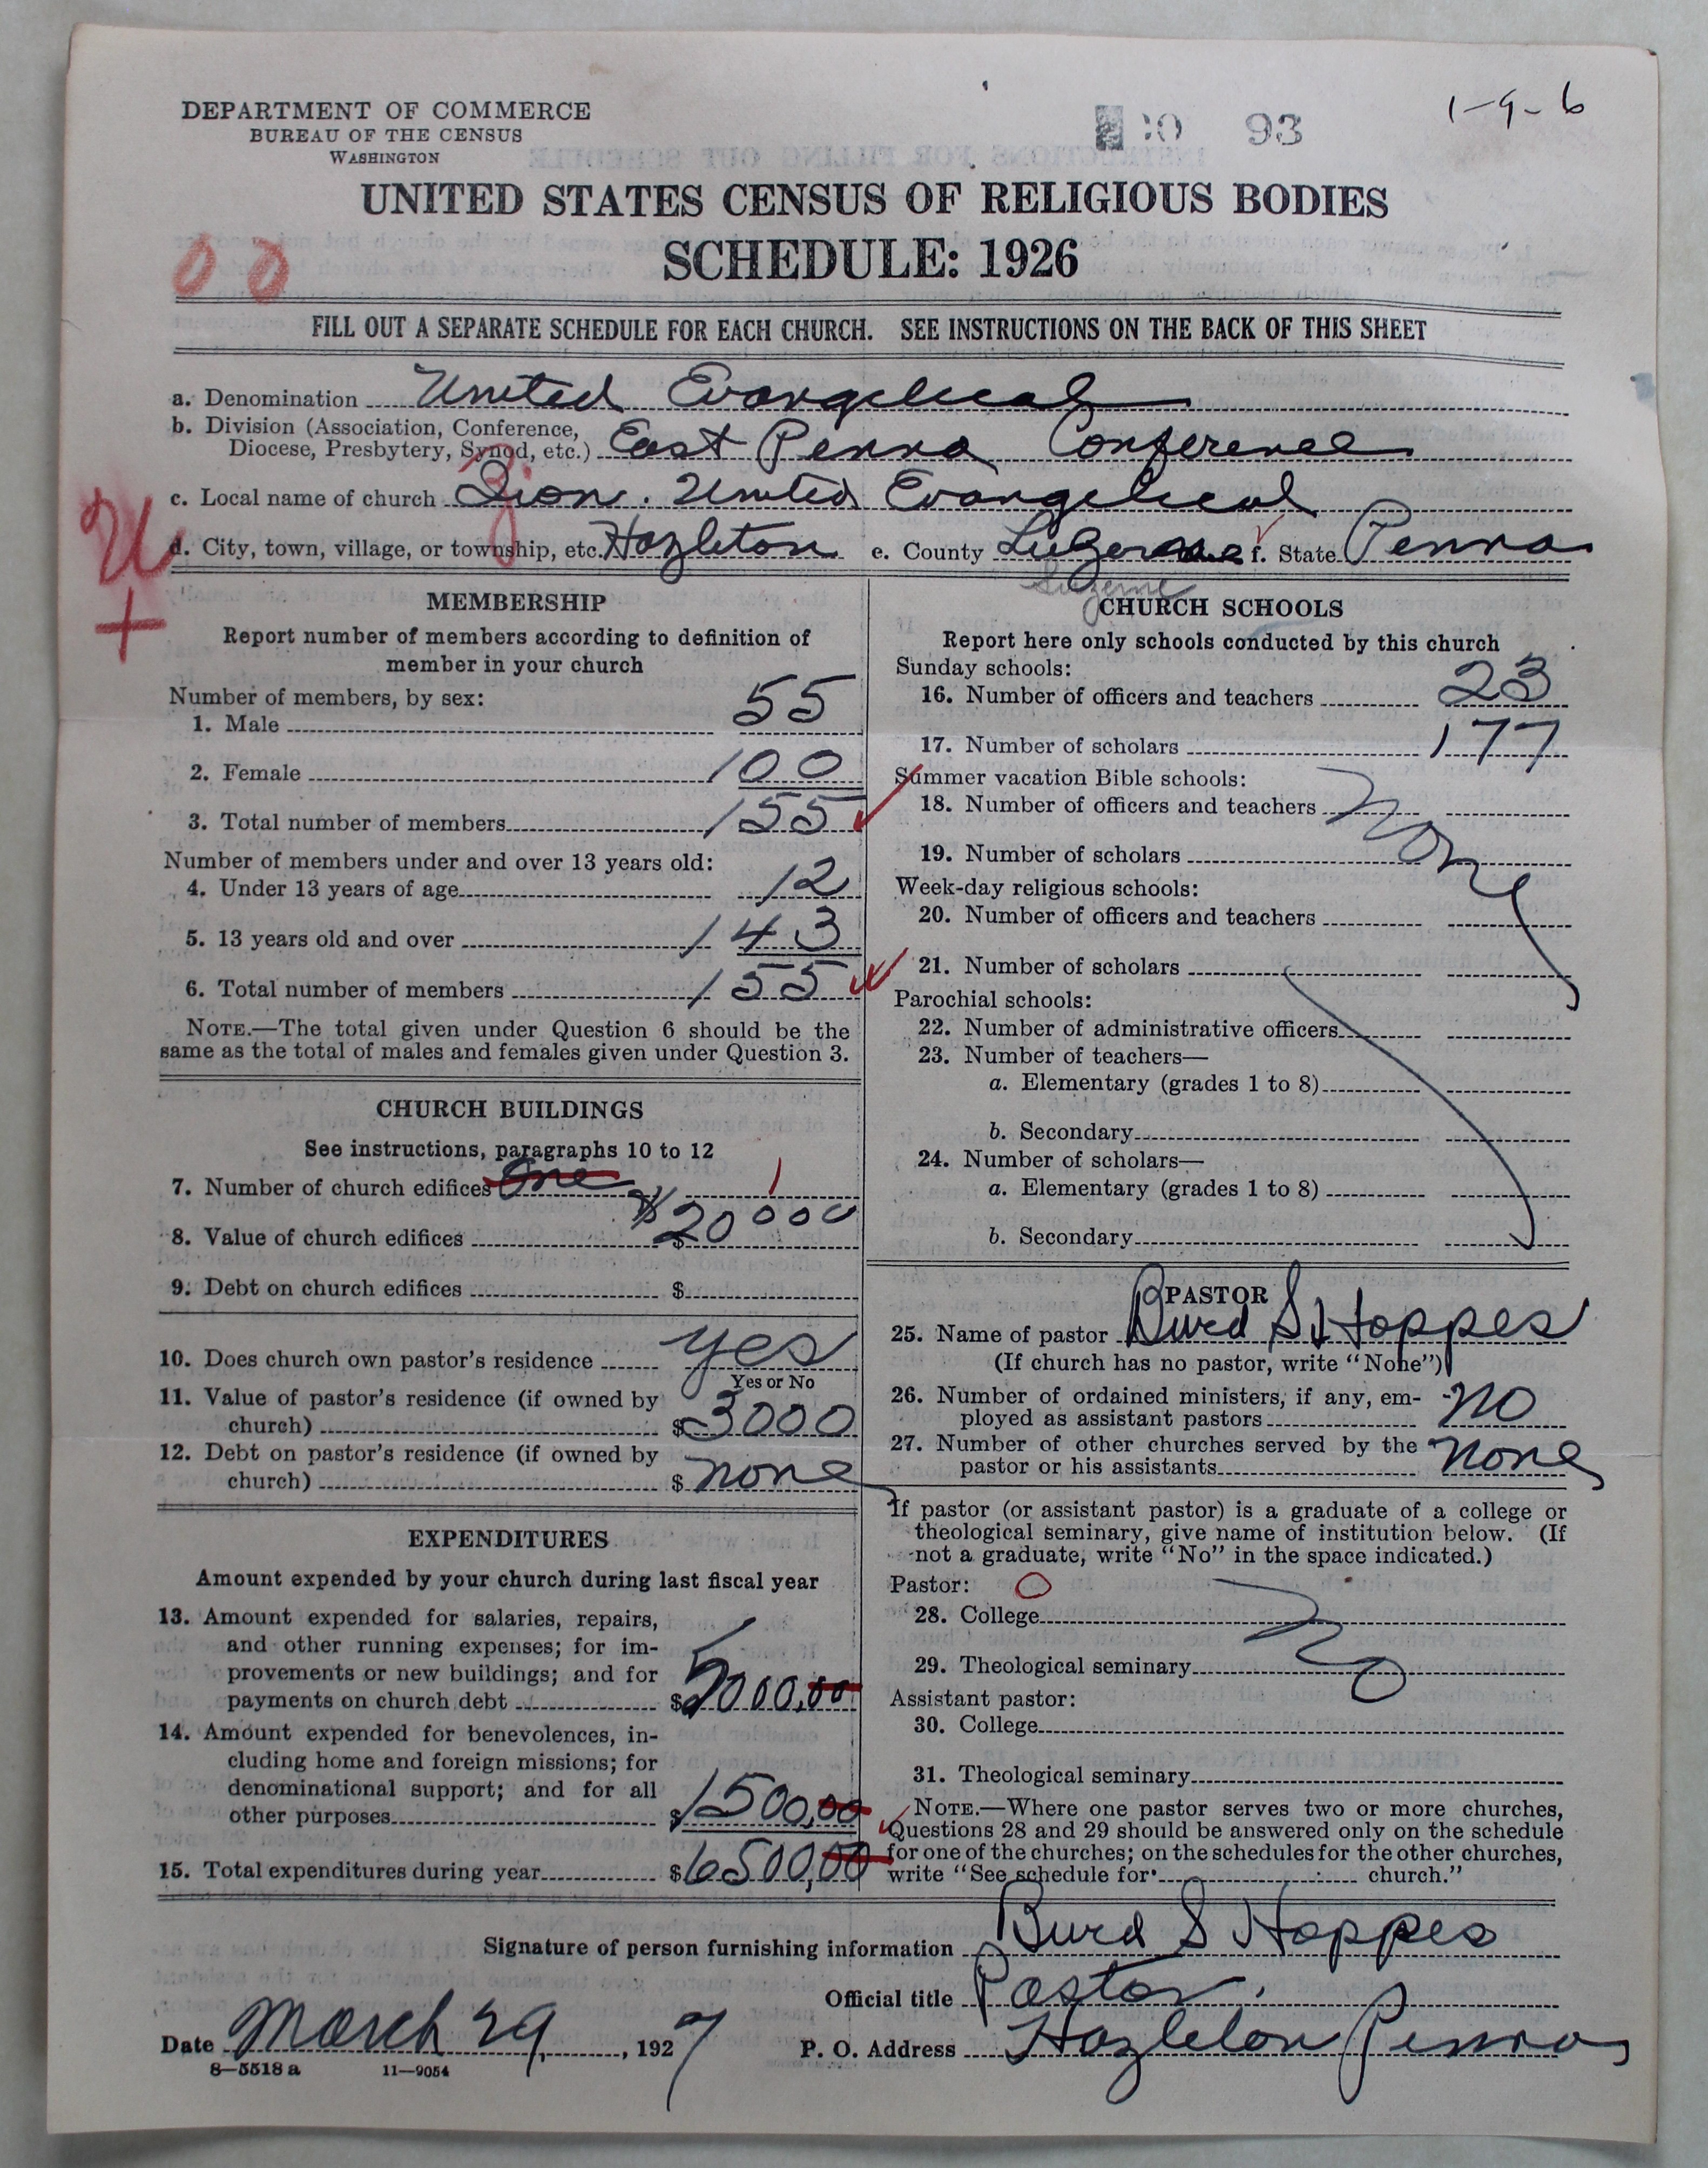 DEPARTMENT OF COMMERCE
BUREAU OF THE CENSUS
WASHINGTON
93
1-9-6
UNITED STATES CENSUS OF RELIGIOUS BODIES
SCHEDULE: 1926
00
FILL OUT A SEPARATE SCHEDULE FOR EACH CHURCH. SEE INSTRUCTIONS ON THE BACK OF THIS SHEET
a. Denomination United Evangelical
b. Division (Association, Conference,
Diocese, Presbytery, Synod, etc.) East Penna Conference
c. Local name of church Zion. United Evangelical
d. City, town, village, or township, etc. Hazleton e. County Luzerne f. State Penna
Luzerne
MEMBERSHIP
Report number of members according to definition of
member in your church
Number of members, by sex:
1. Male 55
2. Female 100
3. Total number of members 155
Number of members under and over 13 years old:
4. Under 13 years of age 12
5. 13 years old and over 143
6. Total number of members 155
NOTE.—The total given under Question 6 should be the
same as the total of males and females given under Question 3.
CHURCH BUILDINGS
See instructions, paragraphs 10 to 12
7. Number of church edifices One 1
8. Value of church edifices $ 20000
9. Debt on church edifices $
10. Does church own pastor's residence yes
Yes or No
11. Value of pastor's residence (if owned by
church) $ 3000
12. Debt on pastor's residence (if owned by
church) $ none
EXPENDITURES
Amount expended by your church during last fiscal year
13. Amount expended for salaries, repairs,
and other running expenses; for im-
provements or new buildings; and for
payments on church debt $ 5000,00
14. Amount expended for benevolences, in-
cluding home and foreign missions; for
denominational support; and for all
other purposes $ 1500,00
15. Total expenditures during year $ 6500,00
CHURCH SCHOOLS
Report here only schools conducted by this church
Sunday schools:
16. Number of officers and teachers 23
17. Number of scholars 177
Summer vacation Bible schools:
18. Number of officers and teachers None
19. Number of scholars
Week-day religious schools:
20. Number of officers and teachers
21. Number of scholars
Parochial schools:
22. Number of administrative officers
23. Number of teachers—
a. Elementary (grades 1 to 8)
b. Secondary
24. Number of scholars—
a. Elementary (grades 1 to 8)
b. Secondary
PASTOR
25. Name of pastor Burd S Hoppes
(If church has no pastor, write "None")
26. Number of ordained ministers, if any, em-
ployed as assistant pastors no
27. Number of other churches served by the
pastor or his assistants none
If pastor (or assistant pastor) is a graduate of a college or
theological seminary, give name of institution below. (If
not a graduate, write "No" in the space indicated.)
Pastor: O
28. College No
29. Theological seminary
Assistant pastor:
30. College
31. Theological seminary
NOTE.—Where one pastor serves two or more churches,
Questions 28 and 29 should be answered only on the schedule
for one of the churches; on the schedules for the other churches,
write "See schedule for church."
Signature of person furnishing information Burd S Hoppes
Official title Pastor.
Date March 29, 1927 P. O. Address Hazleton Penna
8-5518 a 11-9054